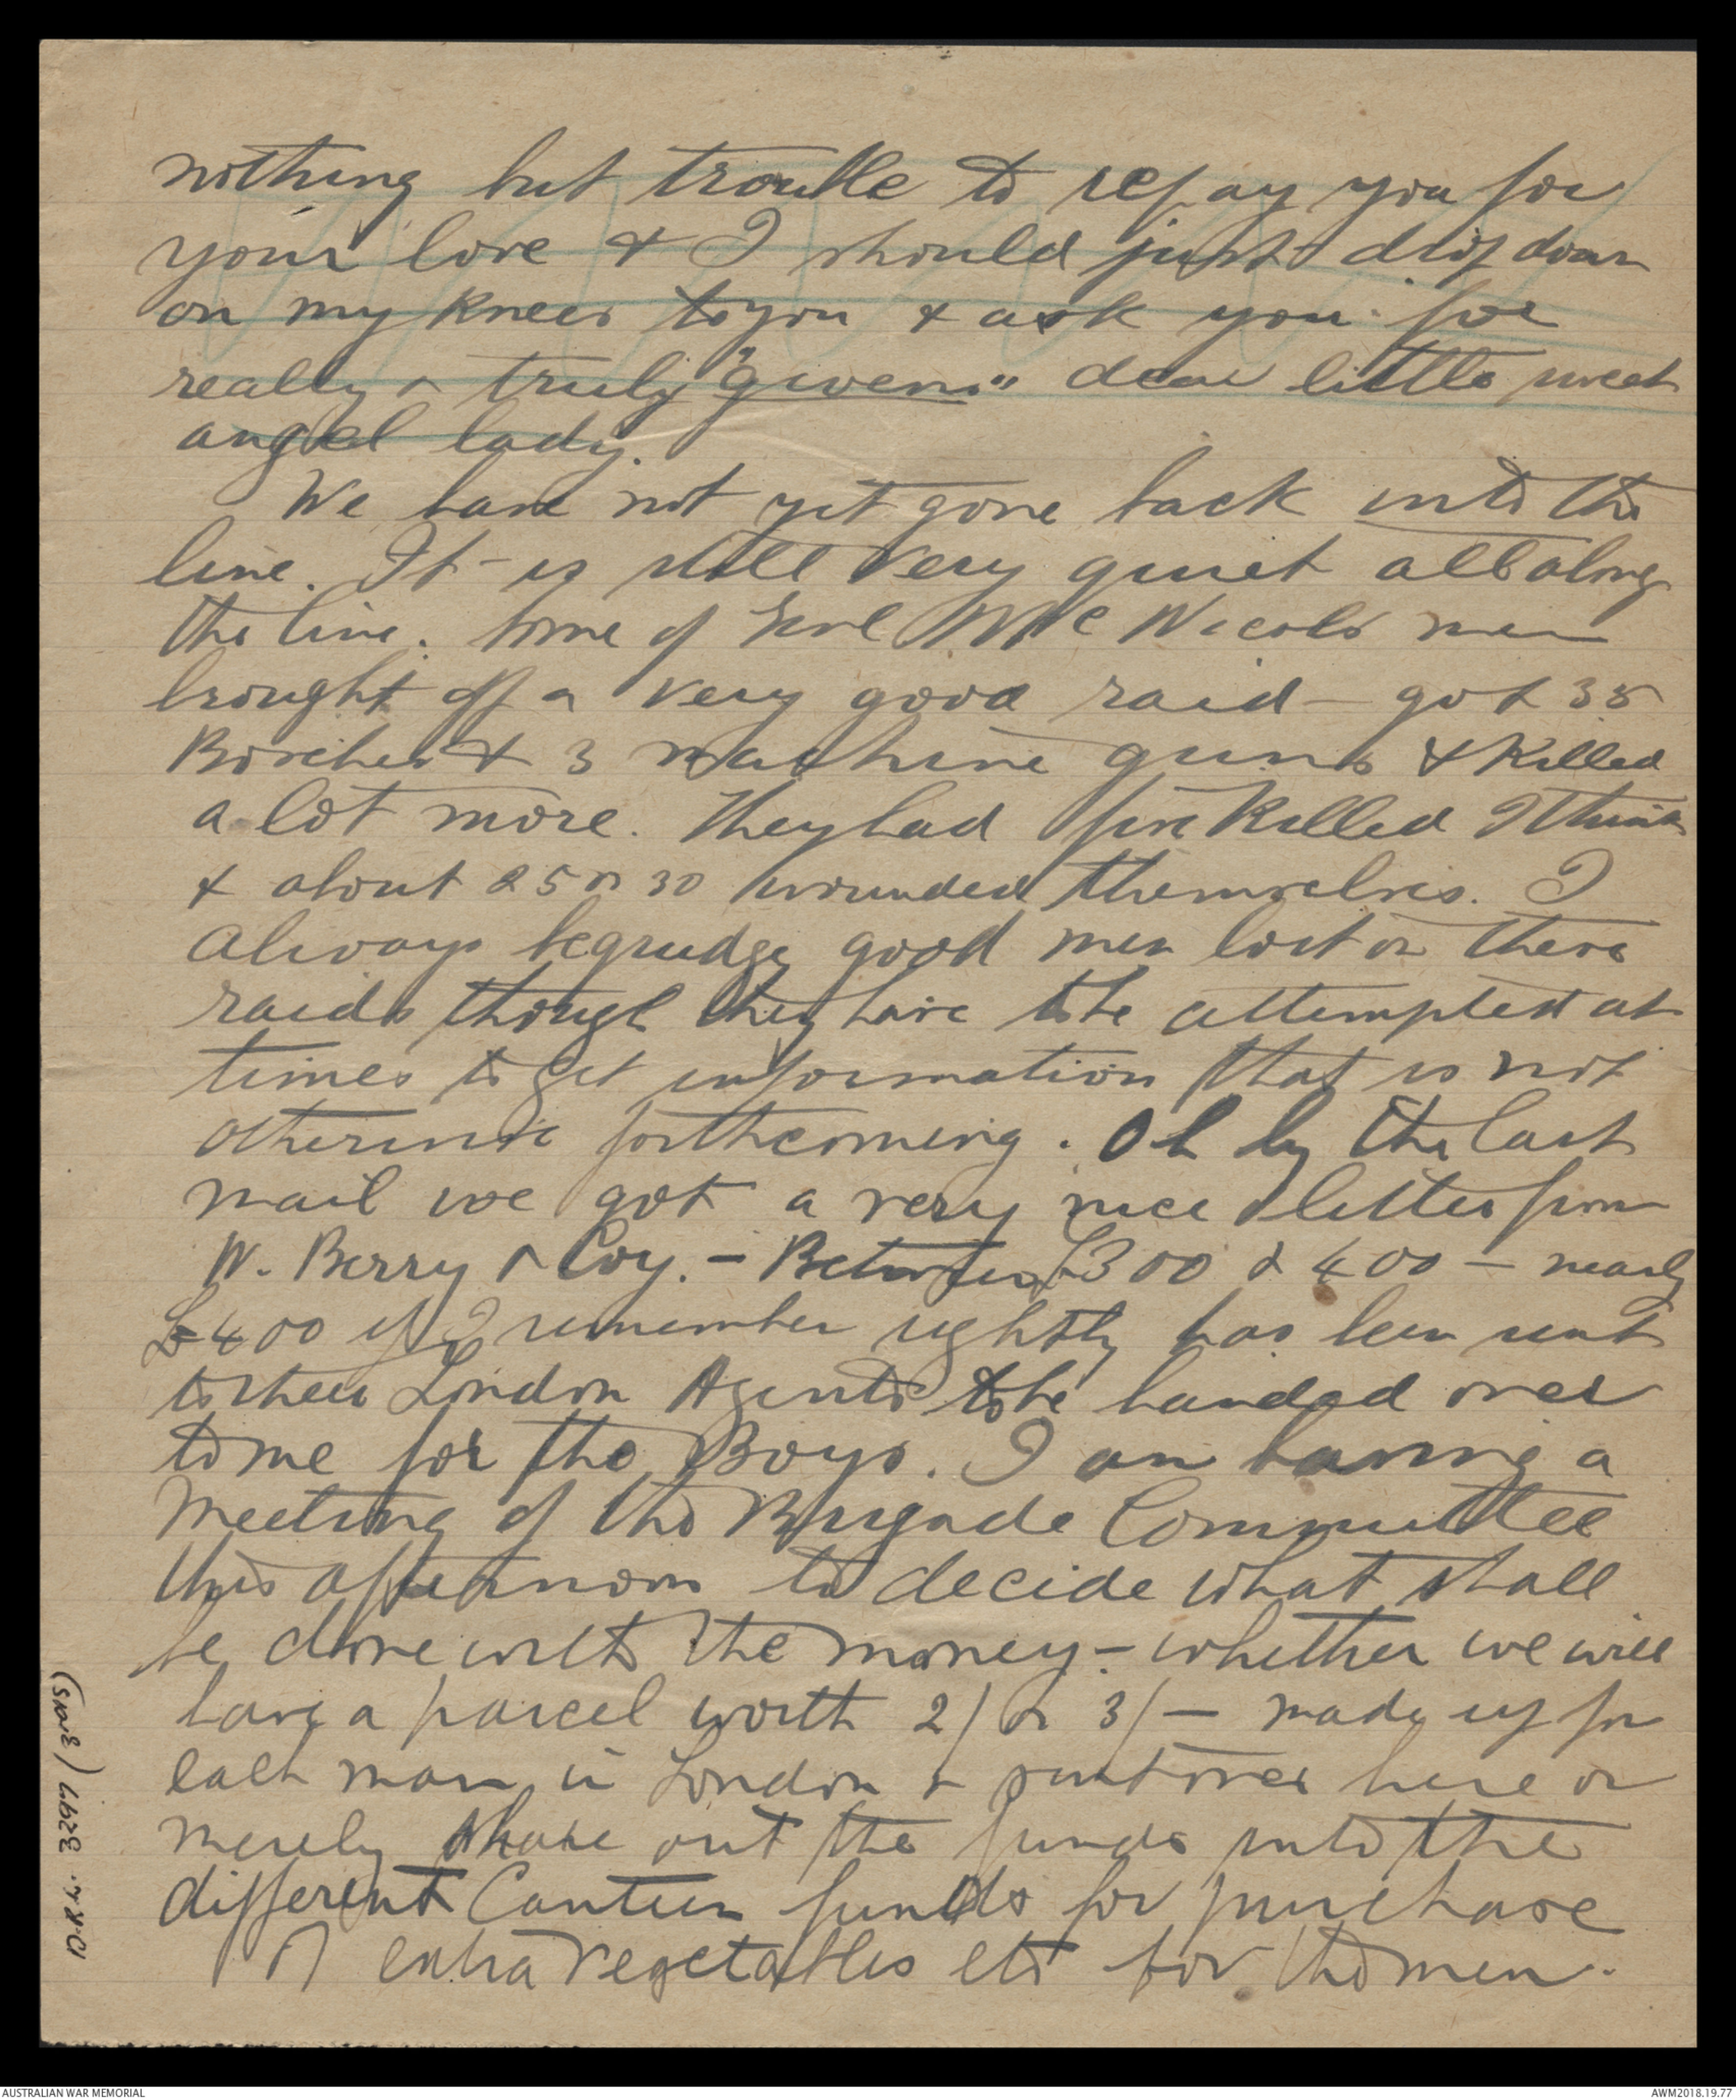 nothing but trouble to repay you for
your love & I should just drop down
on my knees to you & ask you for
really & truly "givens" dear little sweet
angel lady.
We have not yet gone back into the
line. It is still very quiet all along
the line. Some of Genl McNicols men
brought off a very good raid - got 35
Bosches & 3 machine guns & killed
a lot more. They had five killed I think
& about 25 or 30 wounded themselves. I
always begrudge good men lost on these
raids though they have to be attempted at
times to get information that is not
otherwise forthcoming. Oh by the last
mail we got a very nice letter from
W. Berry & Coy. - Between £300 & 400 - nearly
£400 if I remember rightly has been sent
to their London Agents to be handed over
to me for the Boys. I am having a
meeting of the Brigade Committee
this afternoon to decide what shall
be done with the money - whether we will
have a parcel worth 2/ or 3/- made up for
each man in London & sent over here or
merely share out the funds into the
different Canteen funds for purchase
of extra vegetables etc for the men.
AUSTRALIAN WAR MEMORIAL
AWM2018.19.77